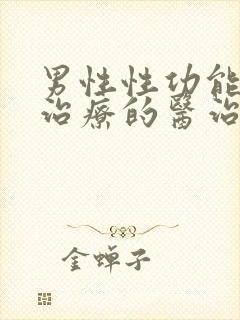 男性性功能
治療的醫治
金蝉子